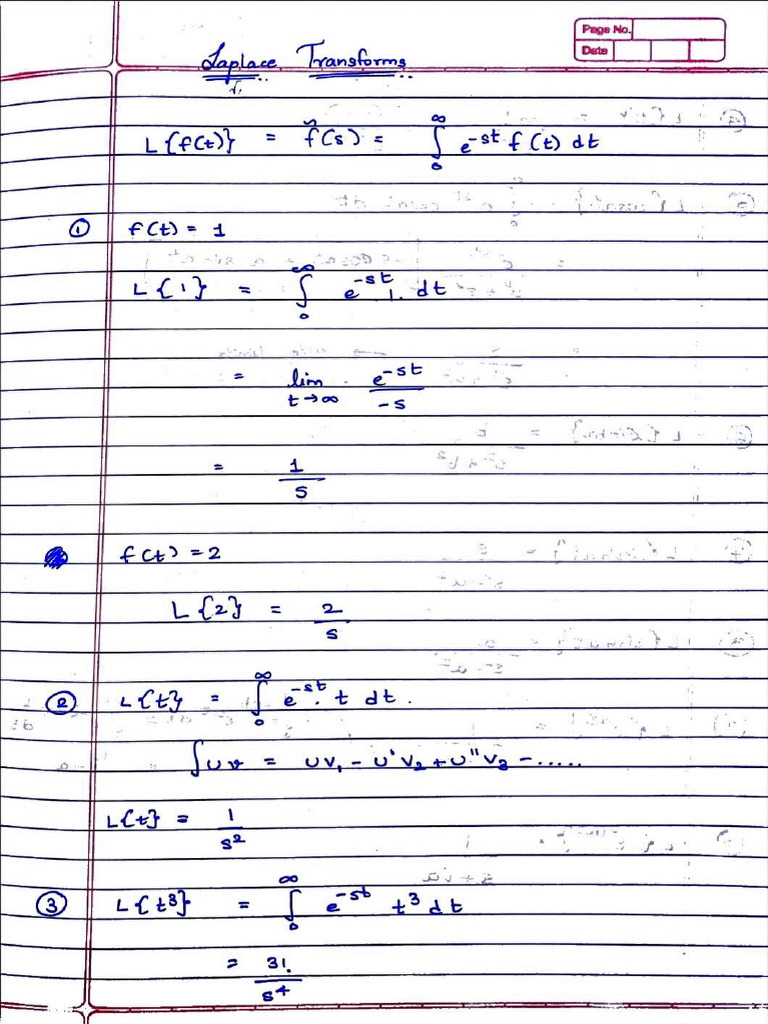 Page No.
Date
Laplace Transforms
L{f(t)} = f̂(s) = ∫₀^∞ e^-st f(t) dt
① f(t) = 1
L{1} = ∫₀^∞ e^-st 1. dt
= lim t→∞ e^-st / -s
= 1/s
f(t) = 2
L{2} = 2/s
② L{t} = ∫₀^∞ e^-st . t dt.
∫uv = uv₁ - u'v₂ + u''v₃ - .....
L{t} = 1/s²
③ L{t³} = ∫₀^∞ e^-st t³ dt
= 3!/s⁴